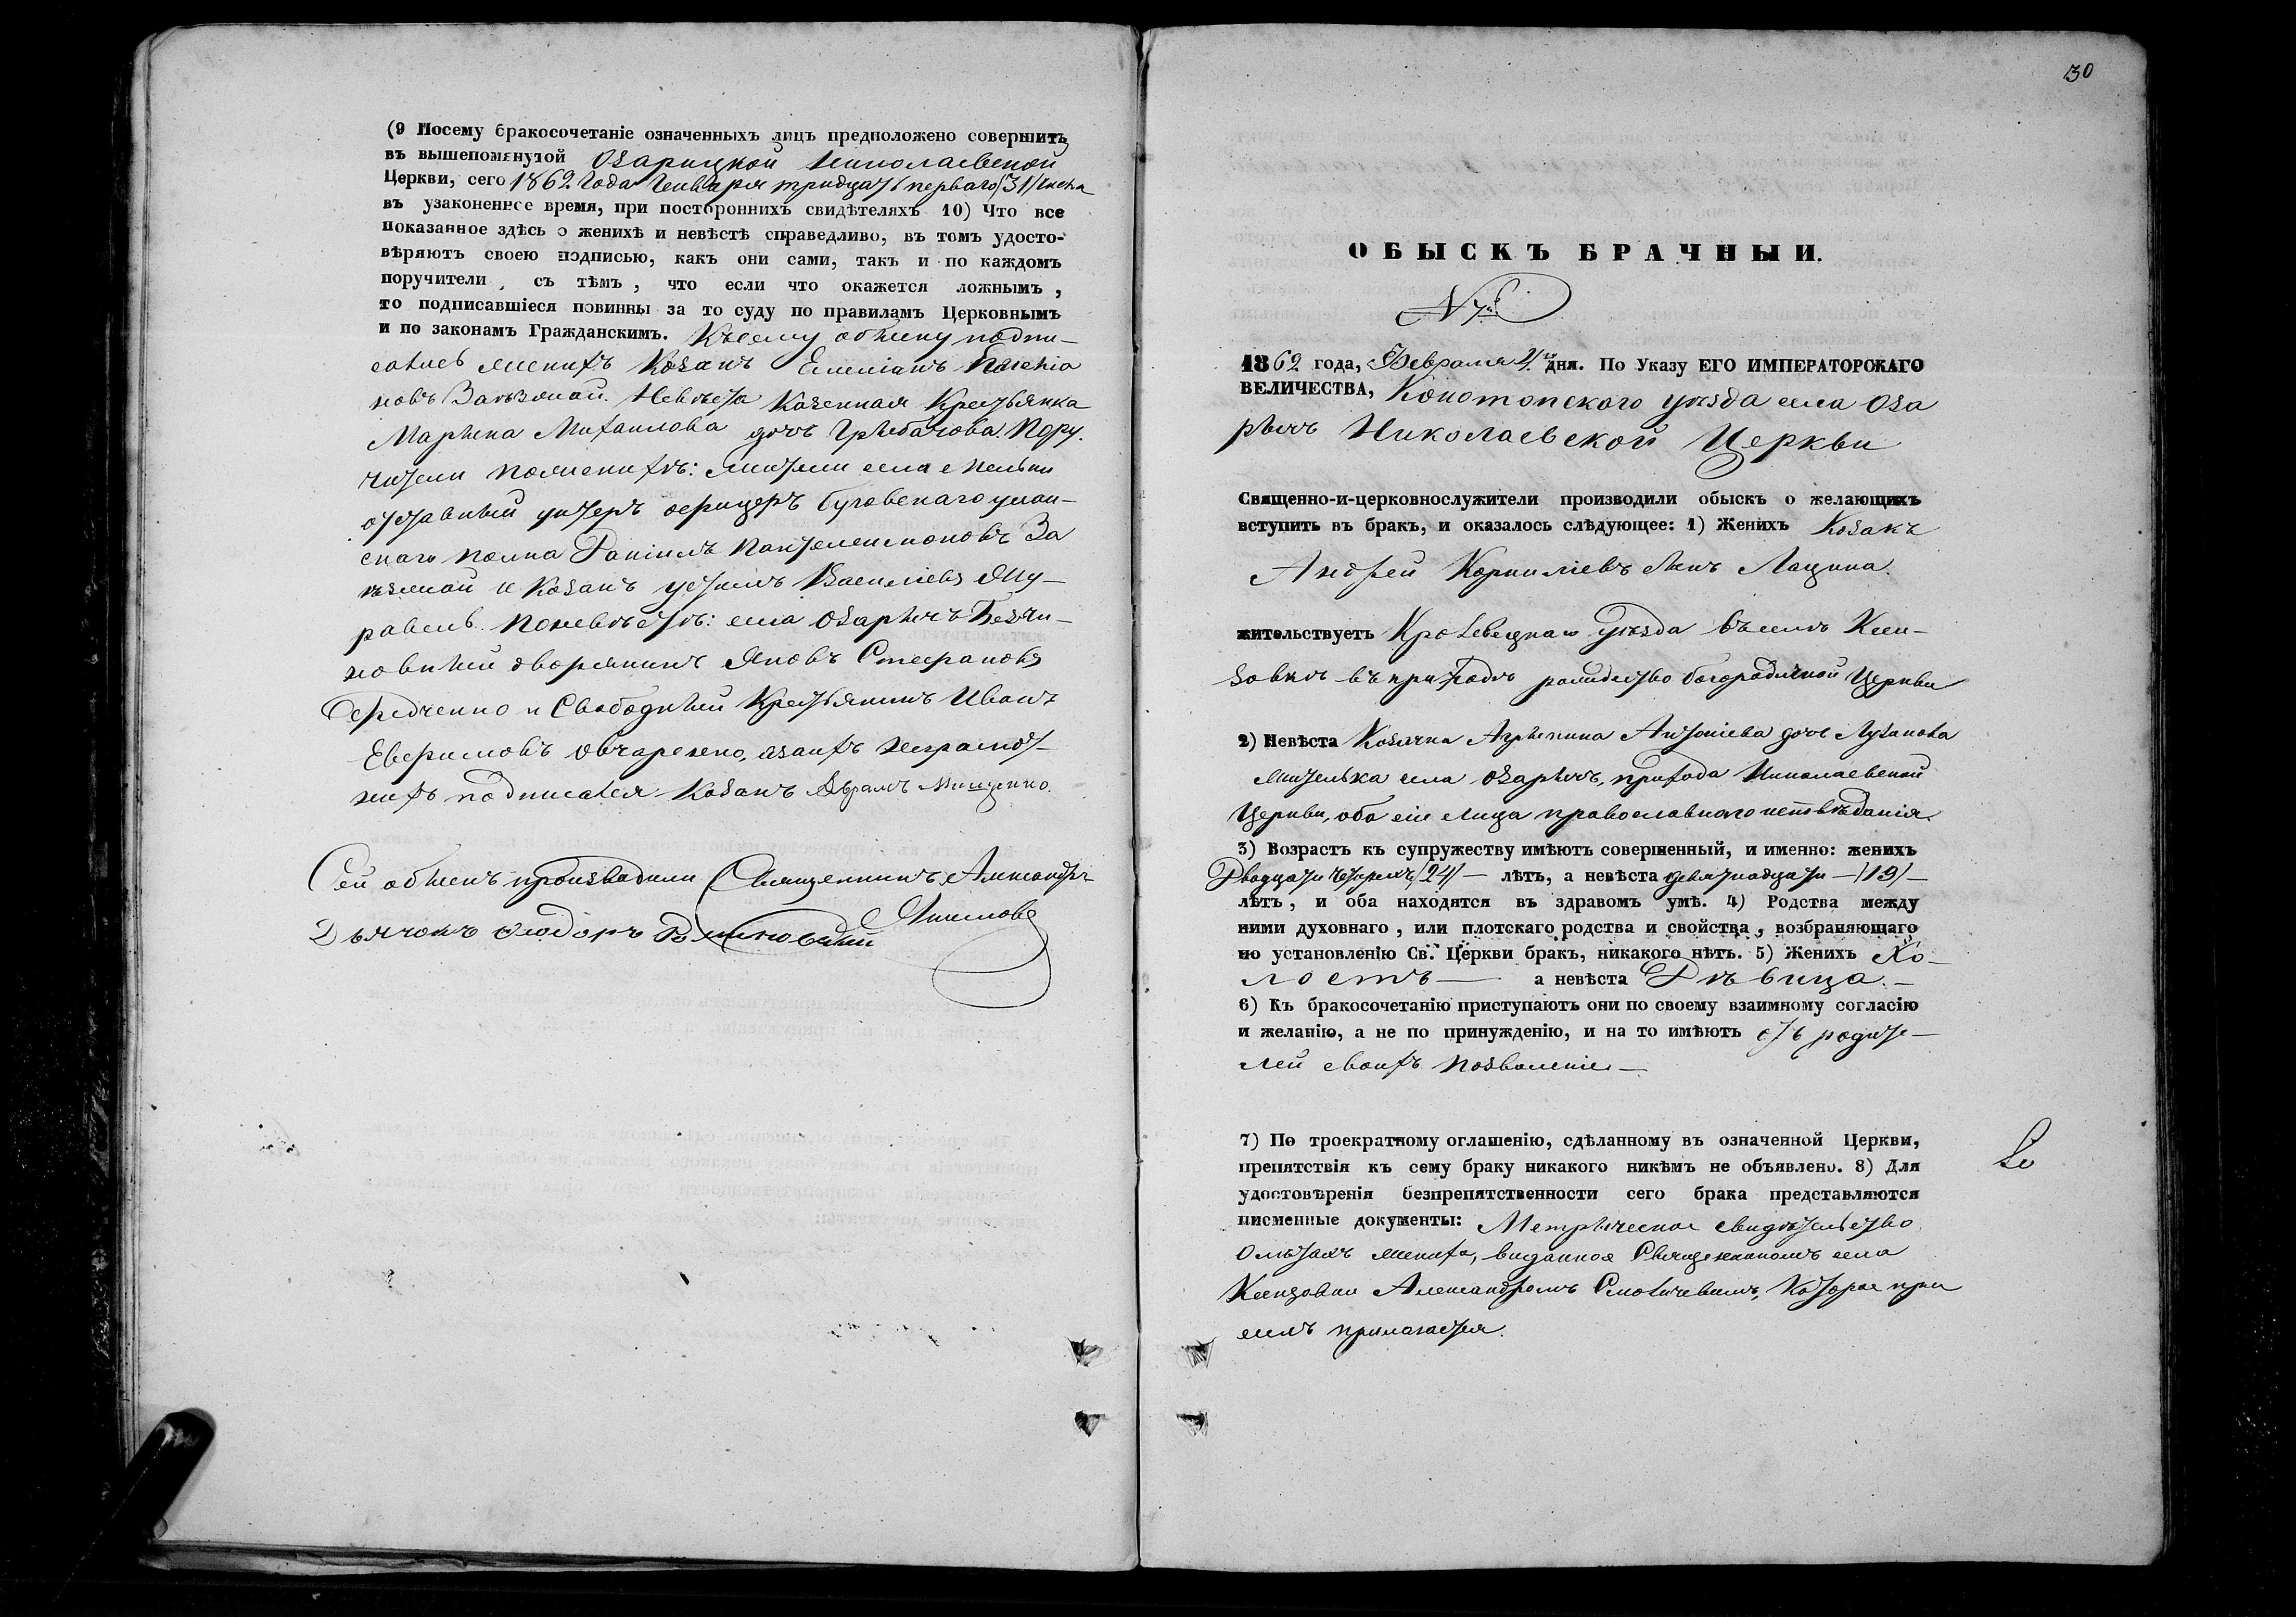 (9 Посему бракосочетаніе означенныхъ лицъ предположено совершить
въ вышепомянутой Озарицкой Николаевской
Церкви, сего 1862 года Генваря тридцать перваго /31/ числа
въ узаконенное время, при постороннихъ свидѣтеляхъ 10) Что все
показанное здѣсь о женихѣ и невѣстѣ справедливо, въ томъ удосто-
вѣряютъ своею подписью, какъ они сами, такъ и по каждомъ
поручители, съ тѣмъ, что если что окажется ложнымъ,
то подписавшіеся повинны за то суду по правиламъ Церковнымъ
и по законамъ Гражданскимъ. Къ сему обыску подпи-
сались женихъ Козакъ Емеліанъ
новъ Невѣста Казенная Крестьянка
Марына Михаилова дочь Грыбачова. Пору.
чители по женихѣ: жители села
отставный унтеръ офицеръ Буговскаго улан-
скаго полка Даніилъ Пантелеимоновъ За
и Козакъ Устимъ Василіевъ Жу-
равель. По невѣстѣ: села Озарычъ Безчи-
новный дворянинъ Яковъ Стефановъ
Середченко и Свободный Крестьянинъ Иванъ
Евфимовъ Овчаренко, а за ихъ неграмот-
ныхъ подписался Козакъ Абрамъ Мищенко.
Сей обыскъ производили Священникъ Александръ
Дьячокъ Феодоръ
30
ОБЫСКЪ БРАЧНЫЙ.
№ 7й
1862 года, Февраля 4го дня. По Указу ЕГО ИМПЕРАТОРСКАГО
ВЕЛИЧЕСТВА, Конотопского уѣзда села Оза
рычъ Николаевской Церкви
Священно-и-церковнослужители производили обыскъ о желающихъ
вступить въ бракъ, и оказалось слѣдующее: 1) Женихъ Козакъ
Андрей Корниліевъ сынъ Лащина.
жительствуетъ Кролевецкаго Уѣзда въ селѣ Ксен-
зовкѣ въ приходѣ рождество богородичной Церкви
2) Невѣста Козачка Агрыпина Антоніева дочь Лузанова
жителька села Озарычъ, прихода Николаевской
Церкви, оба сіи лица православного исповѣданія.
3) Возрастъ къ супружеству имѣютъ совершенный, и именно: женихъ
Двадцати четырехъ /24/ — лѣтъ, а невѣста девятнадцати — /19/ —
лѣтъ, и оба находятся въ здравомъ умѣ. 4) Родства между
ними духовнаго, или плотскаго родства и свойства, возбраняющаго
по установленію Св. Церкви бракъ, никакого нѣтъ. 5) Женихъ Хо-
лостъ — а невѣста Дѣвица. —
6) Къ бракосочетанію приступаютъ они по своему взаимному согласію
и желанію, а не по принужденію, и на то имѣютъ отъ родите-
лей своихъ позволеніе —
7) По троекратному оглашенію, сдѣланному въ означенной Церкви,
препятствія къ сему браку никакого никѣмъ не объявлено. 8) Для
удостовѣренія безпрепятственности сего брака представляются
писменные документы: Метрическое свидѣтельство
о лѣтахъ жениха, виданное Священникомъ села
Ксензовки Александромъ которое при
семъ прилагается.